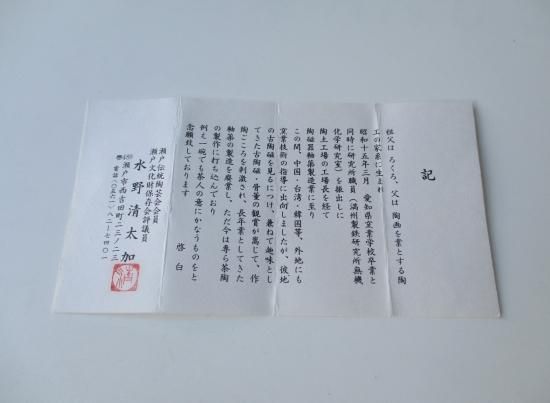 記
祖父は ろくろ、父は 陶画を業とする陶
工の家系に生まれ
昭和十五年三月 愛知県窯業学校卒業と
同時に研究所職員(満州製鉄研究所無機
化学研究室)を振出しに
陶土工場の工場長を経て
陶磁器釉薬製造業に至り
この間、中国・台湾・韓国等、外地にも
窯業技術の指導に出向しましたが、彼地
の古陶磁を見るにつけ、兼ねて趣味とし
てきた古陶磁・骨董の観賞が嵩じて、作
陶ごころを刺激され、長年業としてきた
釉薬の製造を廃業し、ただ今は専ら茶陶
の製作に打ち込んでおり
例え一碗でも茶人の意にかなうものをと
念願致しております
啓白
瀬戸伝統陶芸会会員
瀬戸文化財保存会評議員
水野清太加
〒489 瀬戸市西吉田町二三ノ二三
電話(〇五六一)八二―七四〇一